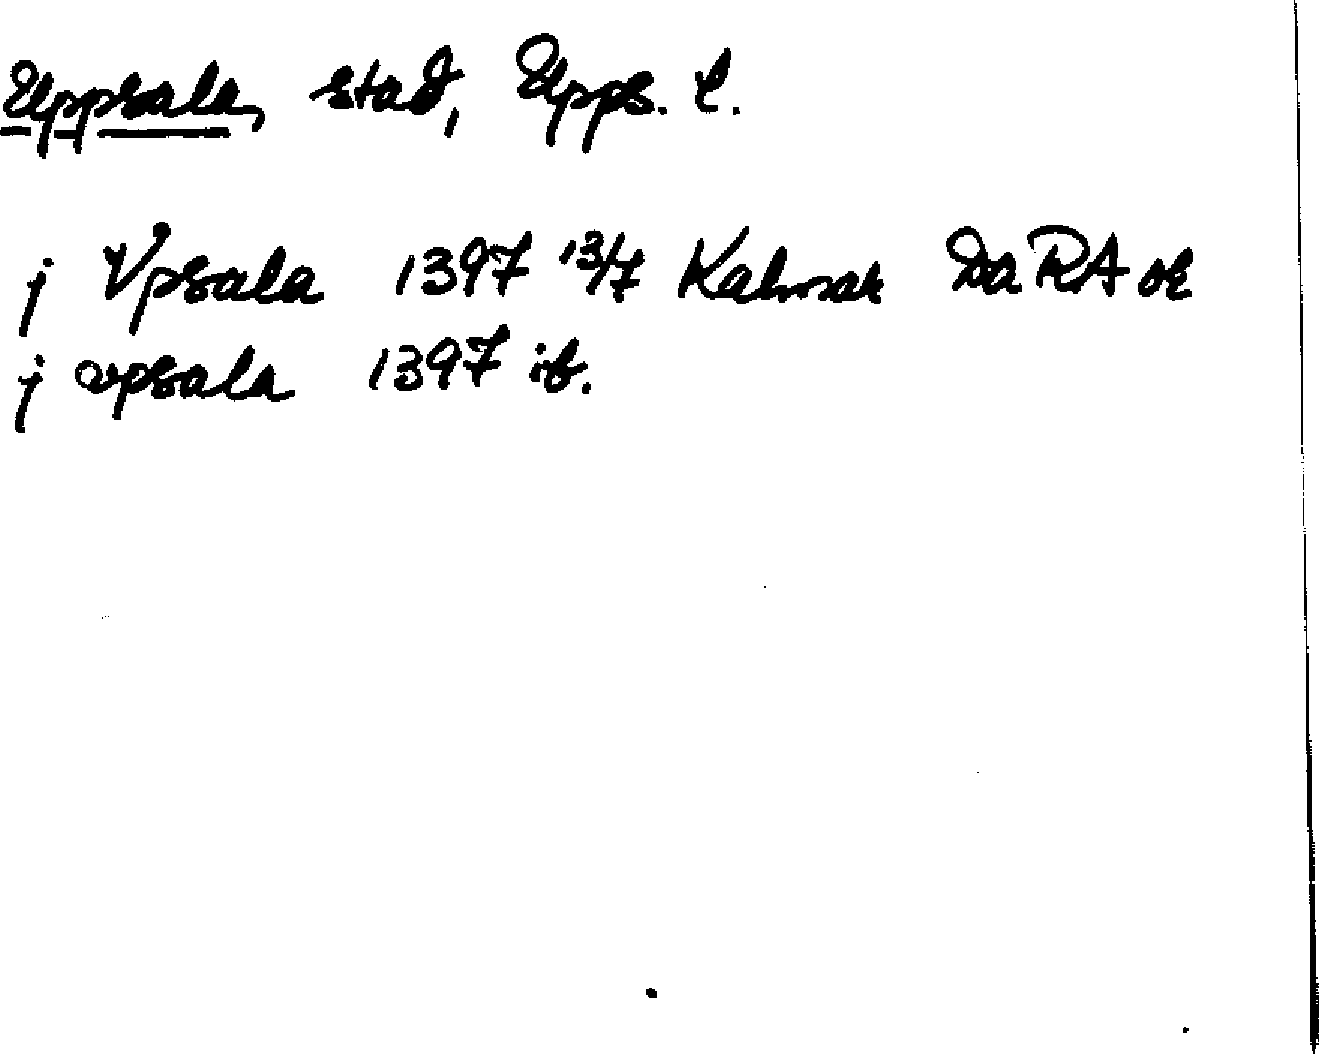 Uppsala, stad, Upps. l.
j Vpsala 1397 13/7 Kalmar DaRA or
j vpsala 1397 ib.